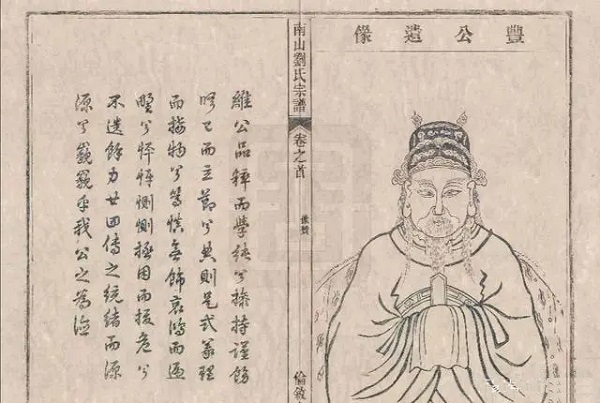 豐公遺像
南山劉氏宗譜
卷之首
像贊
倫敘
維公品粹而學純兮操持謹飭
己而立節兮典則是式
而接物兮篤慎無飾哀鴻而遍
野兮怦怦惻惻拯困而援危兮
不遺餘力廿四傳之統緒而源
源兮巍巍乎我公之為